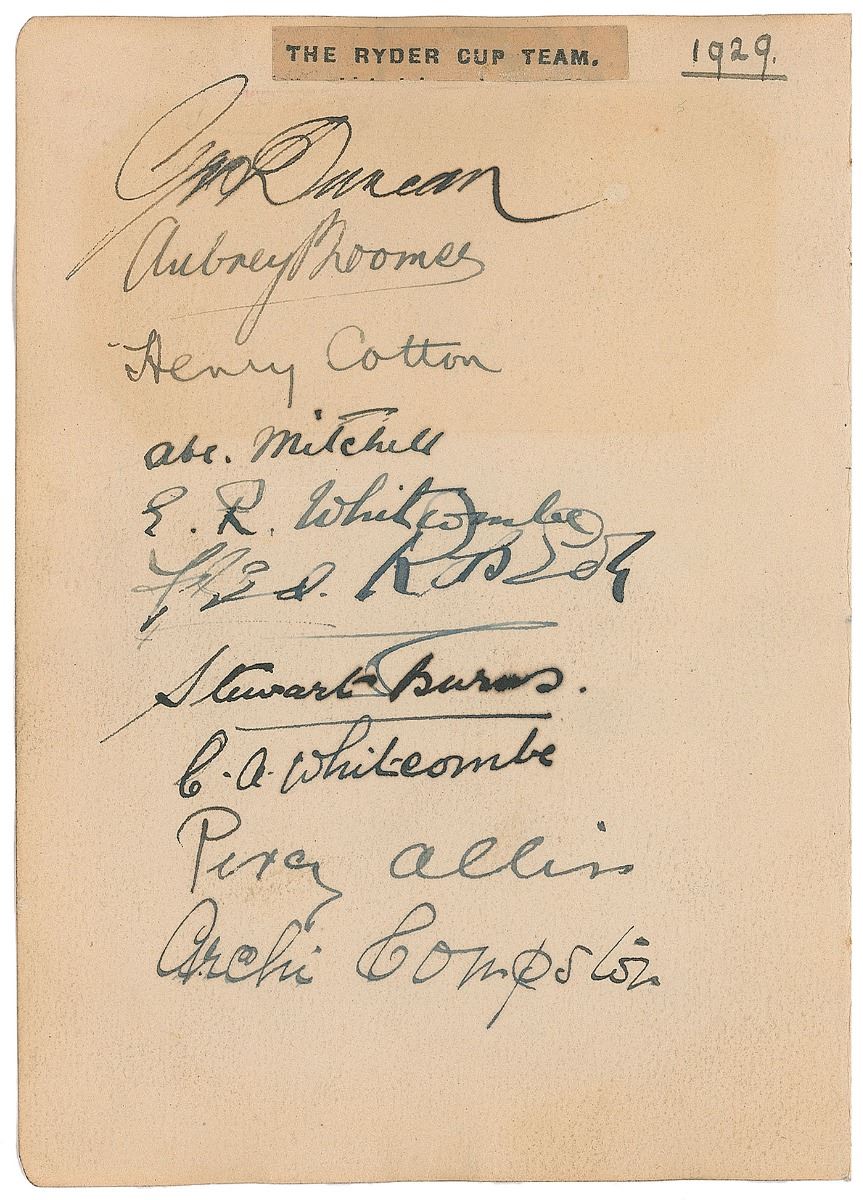 THE RYDER CUP TEAM.
1929.
Geo Duncan
Aubrey Boomer
Henry Cotton
abe. Mitchell
E. R. Whitcombe
Fred. Robson
Stewart Burns.
C. A. Whitcombe
Percy Alliss
Archie Compston